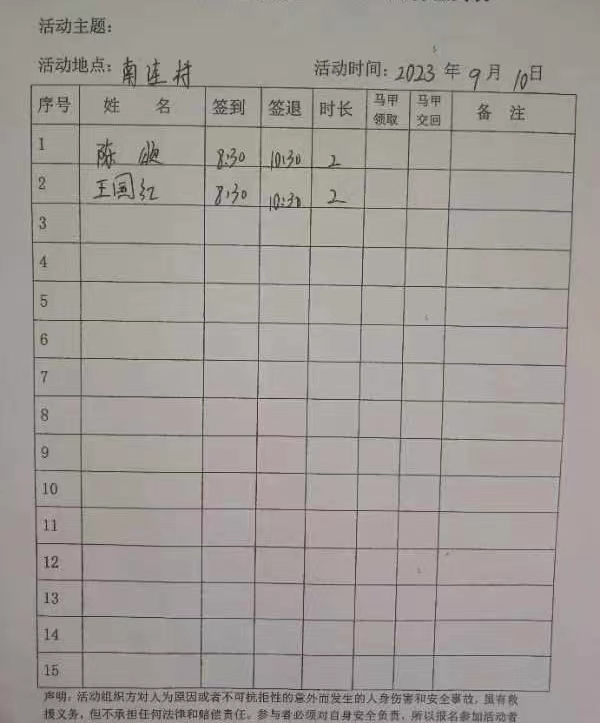 活动主题：
活动地点：南连村 活动时间：2023年9月10日
序号 姓 名 签到 签退 时长 马甲领取 马甲交回 备 注
1 陈 8:30 10:30 2
2 王国红 8:30 10:30 2
3
4
5
6
7
8
9
10
11
12
13
14
15
声明：活动组织方对人为原因或者不可抗拒性的意外而发生的人身伤害和安全事故，虽有救
援义务，但不承担任何法律和赔偿责任。参与者必须对自身安全负责，所以报名参加活动者